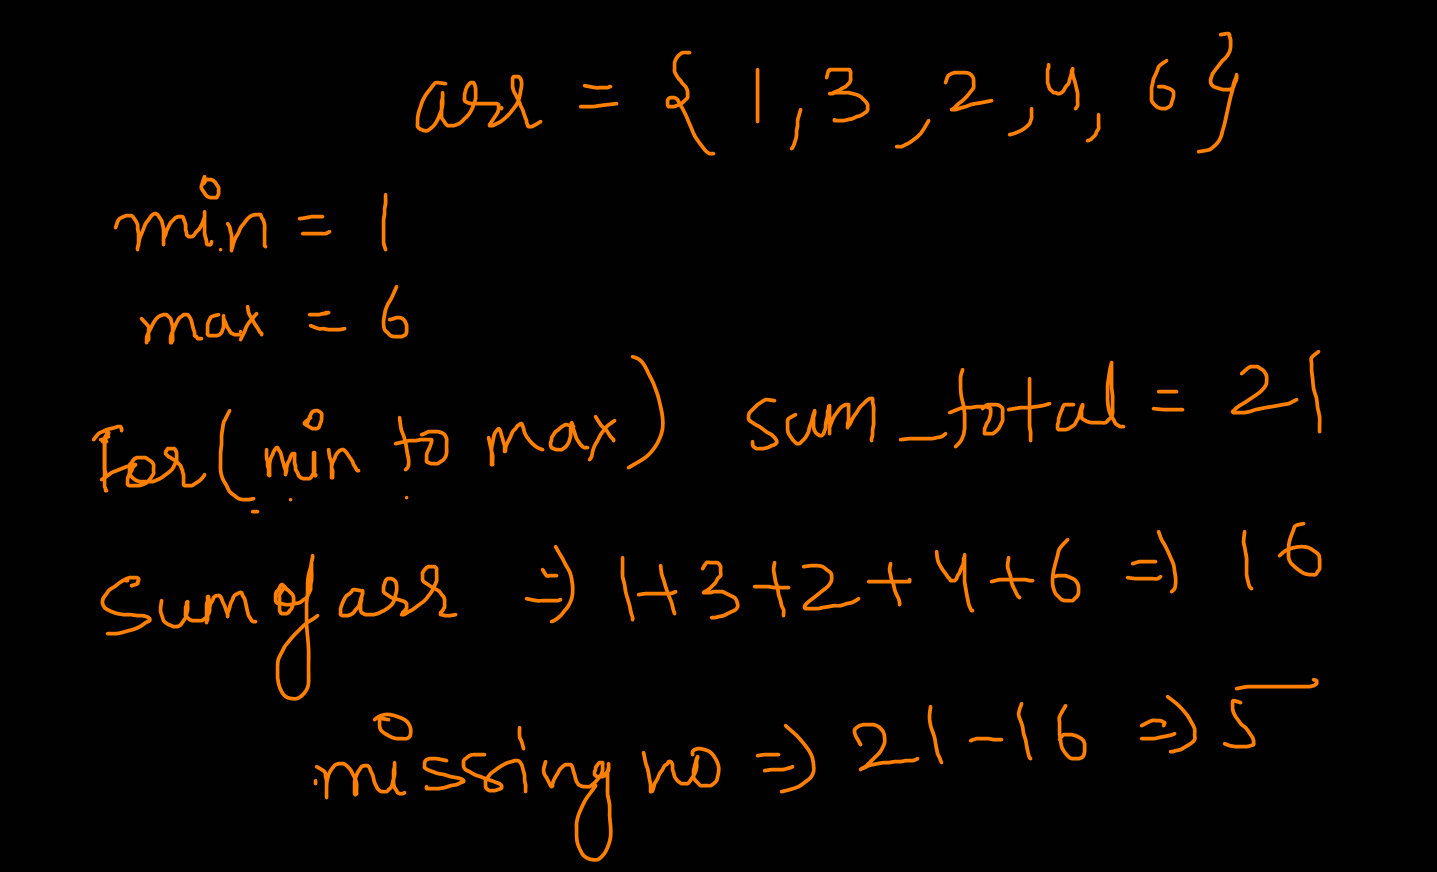 arr = { 1, 3, 2, 4, 6 }
min = 1
max = 6
For (min to max) sum_total = 21
Sum of arr => 1+3+2+4+6 => 16
missing no => 21-16 => 5